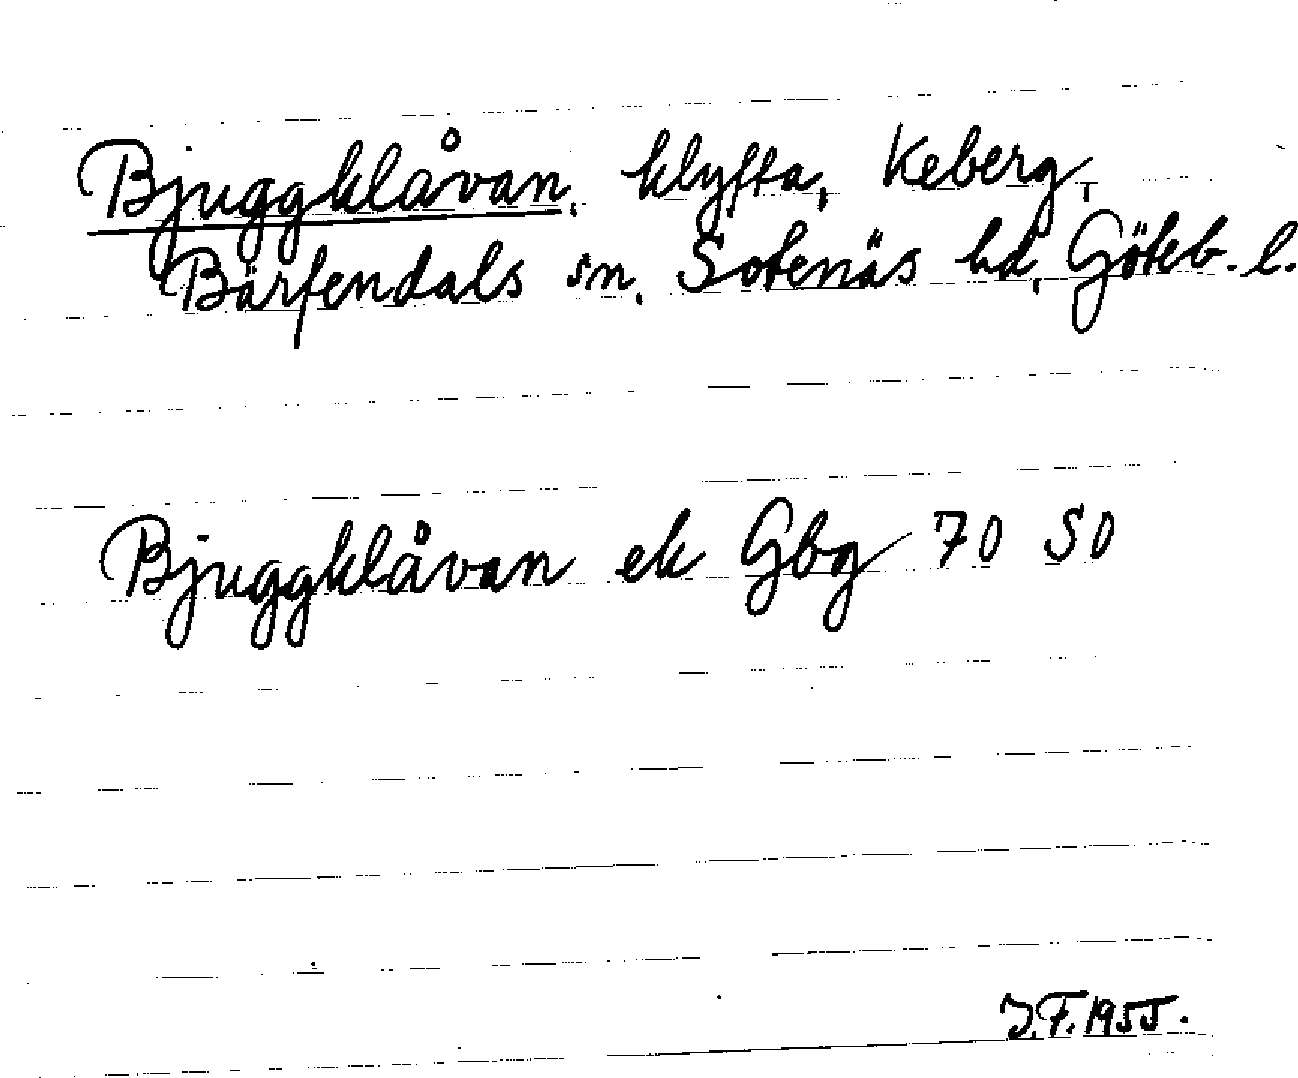 Bjuggklåvan, klyfta, Keberg,
Bärfendals sn. Sotenäs hd, Göteb. l.
Bjuggklåvan ek Gbg 70 SO
J.F. 1955.